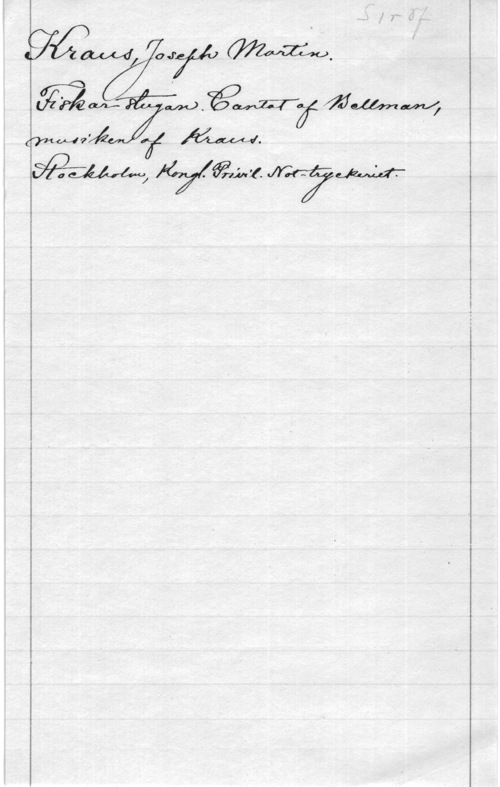 S 1 r öf
Kraus, Joseph Martin.
Fiskar-stugan. Cantat af Bellman,
musiken af Kraus.
Stockholm, Kongl. Privil. Not-tryckeriet.